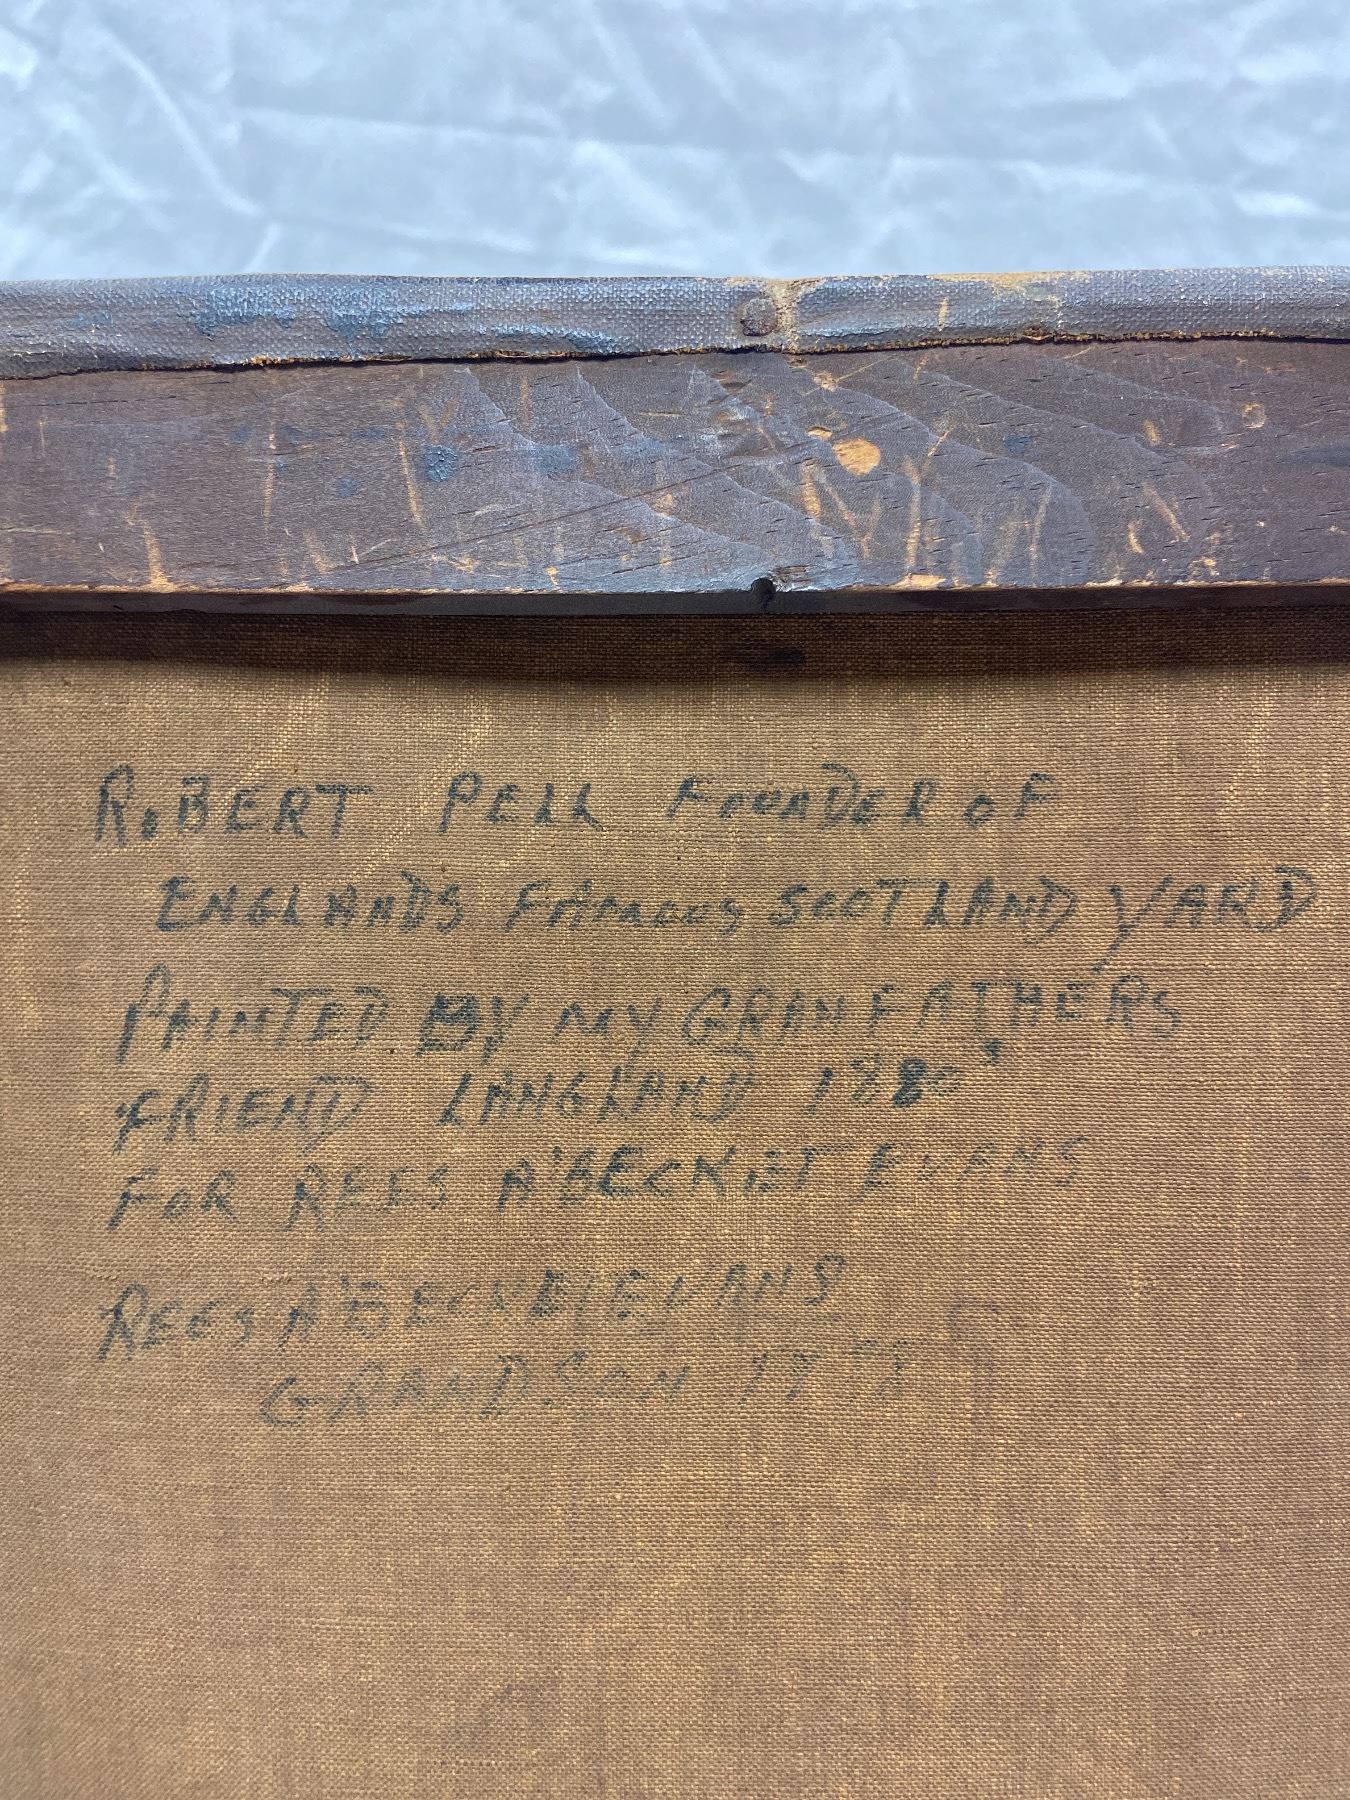 ROBERT PELL FOUNDER OF
ENGLANDS FAMOUS SCOTLAND YARD
PAINTED BY MY GRANFATHERS
FRIEND LANGLAND 1880'S
FOR REES A'BECKET EVANS
REES A'BECKET EVANS
GRANDSON